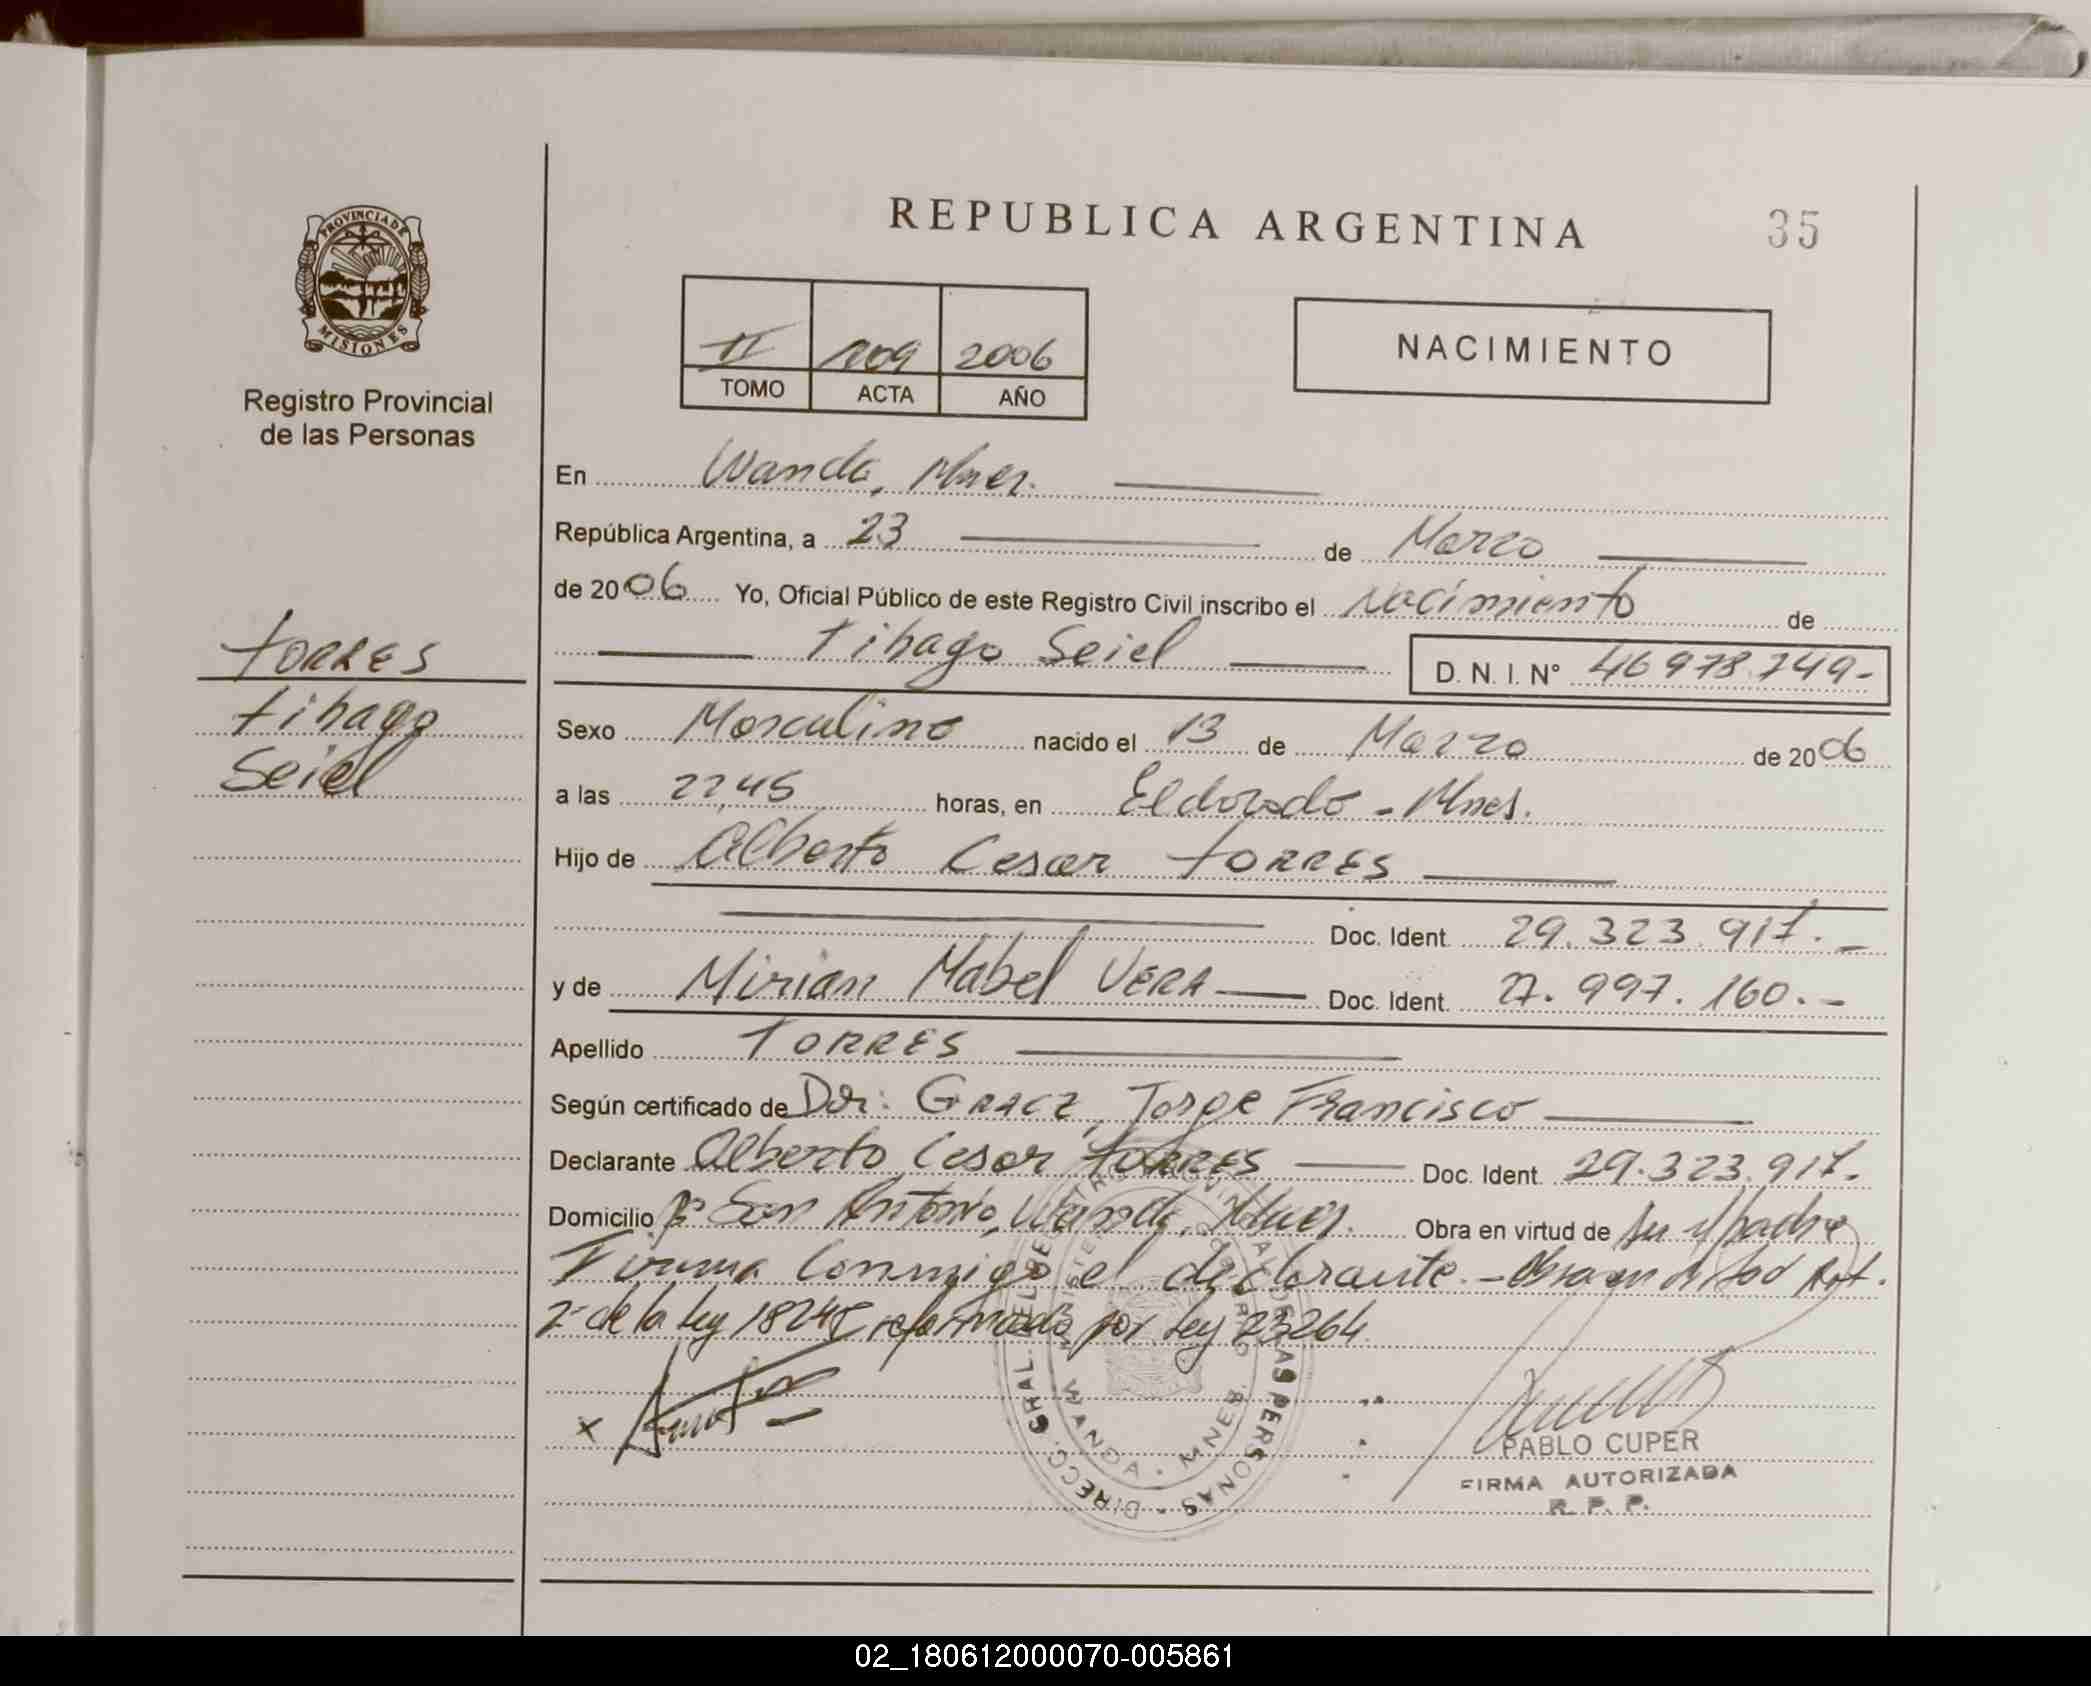 REPUBLICA ARGENTINA
35
PROVINCIA DE
MISIONES
Registro Provincial
de las Personas
II 209 2006
TOMO ACTA AÑO
NACIMIENTO
En Wanda, Mnes.
República Argentina, a 23 de Marzo
de 2006 Yo, Oficial Público de este Registro Civil inscribo el Nacimiento de
Tihago Seiel D. N. I. N° 46978.749-
TORRES
Tihago
Seiel
Sexo Masculino nacido el 13 de Marzo de 2006
a las 22,45 horas, en Eldorado - Mnes.
Hijo de Alberto Cesar TORRES
Doc. Ident. 29.323.917.-
y de Mirian Mabel VERA Doc. Ident. 27.997.160.-
Apellido TORRES
Según certificado de Dr: GRACZ, Jorge Francisco
Declarante Alberto Cesar TORRES Doc. Ident. 29.323.917.
Domicilio Bº San Antonio, Wanda, Mnes. Obra en virtud de su padre
Firma conmigo el declarante. - Art.
2º de la Ley 18248 reformada por Ley 23264
x
DIRECC. GRAL. DEL REGISTRO PROVINCIAL DE LAS PERSONAS
MINISTERIO GOBIERNO
WANDA - MNES.
PABLO CUPER
FIRMA AUTORIZADA
R. P. P.
02_180612000070-005861